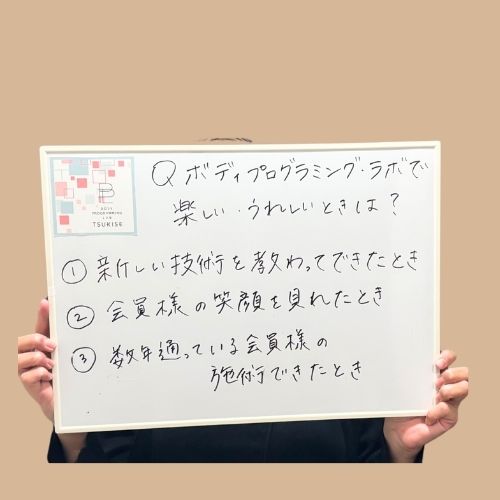 BODY
PROGRAMMING
LAB
TSUKISE
Q ボディプログラミング・ラボで
楽しい・うれしいときは？
① 新しい技術を教わってできたとき
② 会員様の笑顔を見れたとき
③ 数年通っている会員様の
施術できたとき